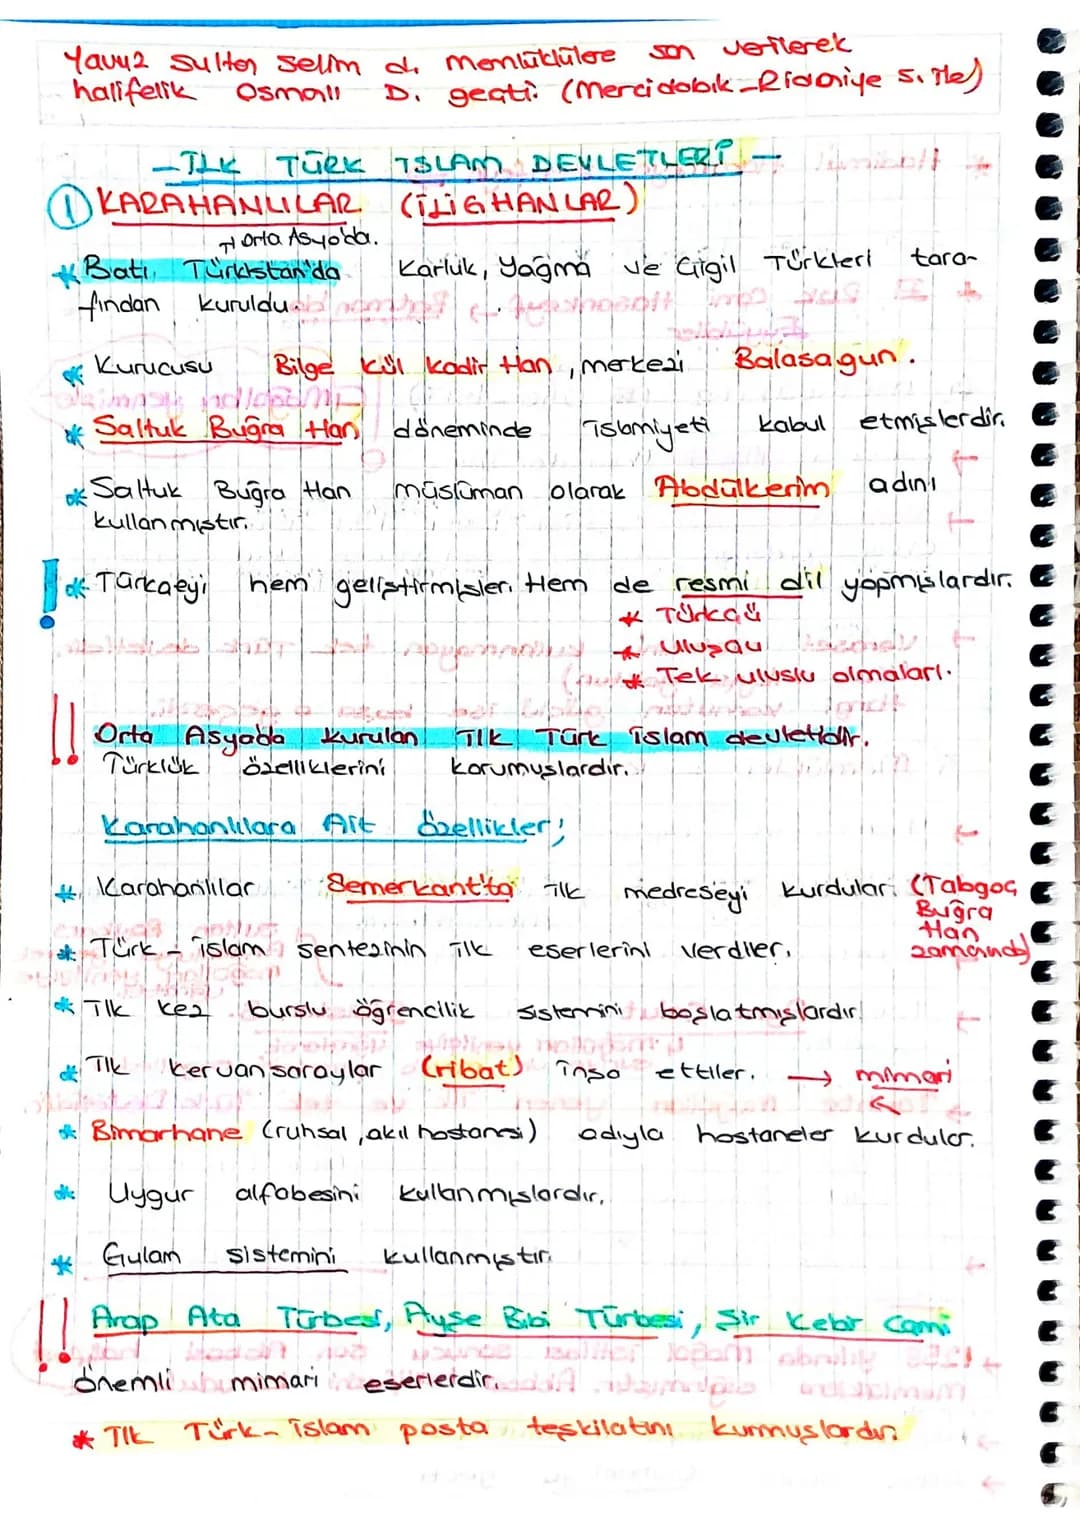 Yavuz Sultan Selim d. memlüklülere son verilerek
halifelik Osmalı D. geçti. (Mercidabık - Ridaniye S. ile)
- İLK TÜRK İSLAM DEVLETLERİ -
① KARAHANLILAR (İLİGHANLAR)
→ Orta Asya'da.
* Batı Türkistan'da Karluk, Yağma ve Çigil Türkleri tara-
fından kuruldu.
* Kurucusu Bilge Kül Kadir Han, merkezi Balasagun.
* Saltuk Buğra Han döneminde islamiyeti kabul etmişlerdir.
* Saltuk Buğra Han müslüman olarak Abdülkerim adını
kullanmıştır.
! * Türkçeyi hem geliştirmişler. Hem de resmi dil yapmışlardır.
* Türkçü
* Ulusçu
* Tek uluslu olmaları.
!! Orta Asyada kurulan İlk Türk islam devletidir.
Türklük özelliklerini korumuşlardır.
Karahanlılara Ait özellikler;
* Karahanlılar Semerkant'ta ilk medreseyi kurdular. (Tabgaç
Buğra
Han
zamanında)
* Türk - islam sentezinin ilk eserlerini verdiler.
* İlk kez burslu öğrencilik sistemini başlatmışlardır.
* İlk kervansaraylar (ribat) inşa ettiler. → mimari
* Bimarhane (ruhsal, akıl hastanesi) adıyla hastaneler kurdular.
* Uygur alfabesini kullanmışlardır.
* Gulam sistemini kullanmıştır.
!! Arap Ata Türbesi, Ayşe Bibi Türbesi, Şir Kebir Cami
önemli mimari eserlerdir.
* İlk Türk - islam posta teşkilatını kurmuşlardır.